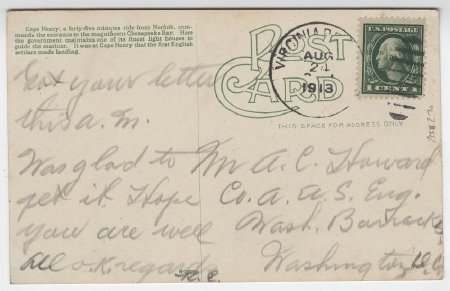 Cape Henry, a forty-five minutes ride from Norfolk, com-
mands the entrance to the magnificent Chesapeake Bay. Here
the government maintains one of its finest light houses to
guide the mariner. It was at Cape Henry that the first English
settlers made landing.
POST
CARD
THIS SPACE FOR ADDRESS ONLY
VIRGINIA
AUG
24
1913
U.S. POSTAGE
1 CENT 1
Got your letter
this a.m.
Was glad to
get it. Hope
you are well
All o.k. regards
M A. C. Howard
Co. A. U.S. Eng.
Wash. Barracks
Washington, D.C.